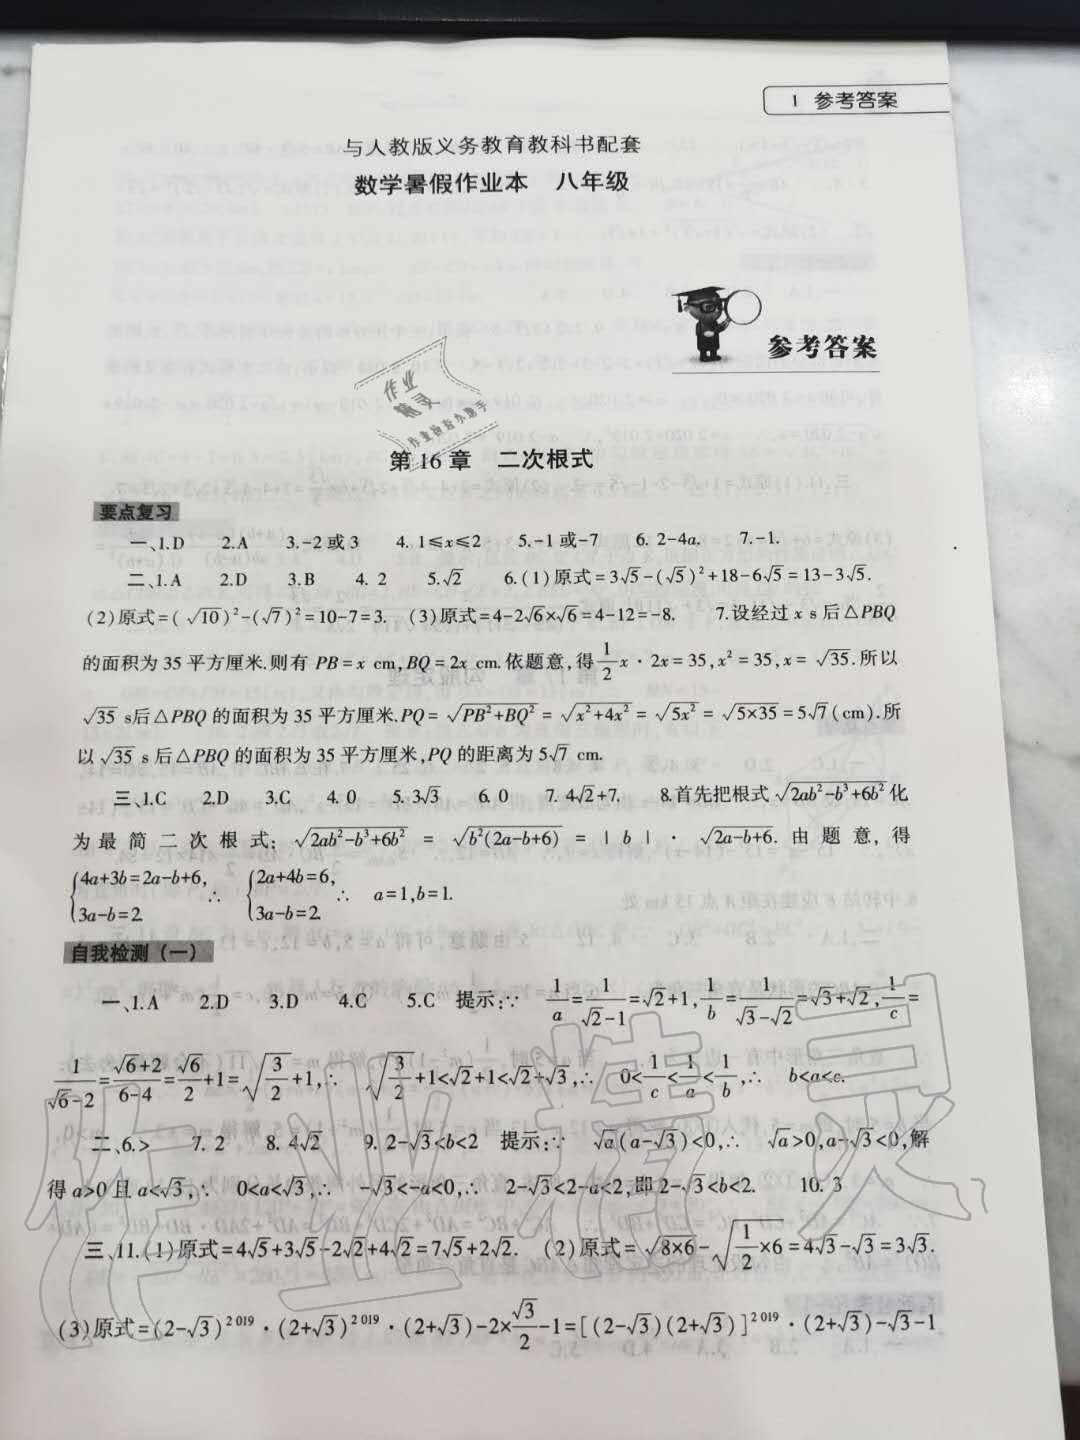 1 参考答案
与人教版义务教育教科书配套
数学暑假作业本 八年级
参考答案
作业
精灵
作业检查小助手
第16章 二次根式
要点复习
一、1.D 2.A 3.-2或3 4. 1≤x≤2 5.-1或-7 6. 2-4a. 7.-1.
二、1.A 2.D 3.B 4. 2 5.√2 6.(1)原式=3√5-(√5)²+18-6√5=13-3√5.
(2)原式=(√10)²-(√7)²=10-7=3. (3)原式=4-2√6×√6=4-12=-8. 7.设经过x s后△PBQ
的面积为35平方厘米.则有PB=x cm,BQ=2x cm.依题意,得1/2x·2x=35,x²=35,x=√35.所以
√35 s后△PBQ的面积为35平方厘米.PQ=√(PB²+BQ²)=√(x²+4x²)=√(5x²)=√(5×35)=5√7(cm).所
以√35 s后△PBQ的面积为35平方厘米,PQ的距离为5√7 cm.
三、1.C 2.D 3.C 4. 0 5. 3√3 6. 0 7. 4√2+7. 8.首先把根式√(2ab²-b³+6b²)化
为最简二次根式:√(2ab²-b³+6b²)=√(b²(2a-b+6))=|b|·√(2a-b+6).由题意,得
{4a+3b=2a-b+6, 3a-b=2. ∴ {2a+4b=6, 3a-b=2. ∴ a=1,b=1.
自我检测(一)
一、1.A 2.D 3.D 4.C 5.C 提示:∵ 1/a=1/(√2-1)=√2+1,1/b=1/(√3-√2)=√3+√2,1/c=
1/(√6-2)=(√6+2)/(6-4)=√6/2+1=√(3/2)+1,∴ √(3/2)+1<√2+1<√2+√3,∴ 0<1/c<1/a<1/b,∴ b<a<c.
二、6.> 7. 2 8. 4√2 9. 2-√3<b<2 提示:∵ √a(a-√3)<0,∴ √a>0,a-√3<0,解
得a>0且a<√3,∵ 0<a<√3,∴ -√3<-a<0,∴ 2-√3<2-a<2,即2-√3<b<2. 10. 3
三、11.(1)原式=4√5+3√5-2√2+4√2=7√5+2√2. (2)原式=√(8×6)-√(1/2×6)=4√3-√3=3√3.
(3)原式=(2-√3)²⁰¹⁹·(2+√3)²⁰¹⁹·(2+√3)-2×√3/2-1=[(2-√3)(2+√3)]²⁰¹⁹·(2+√3)-√3-1
作业精灵